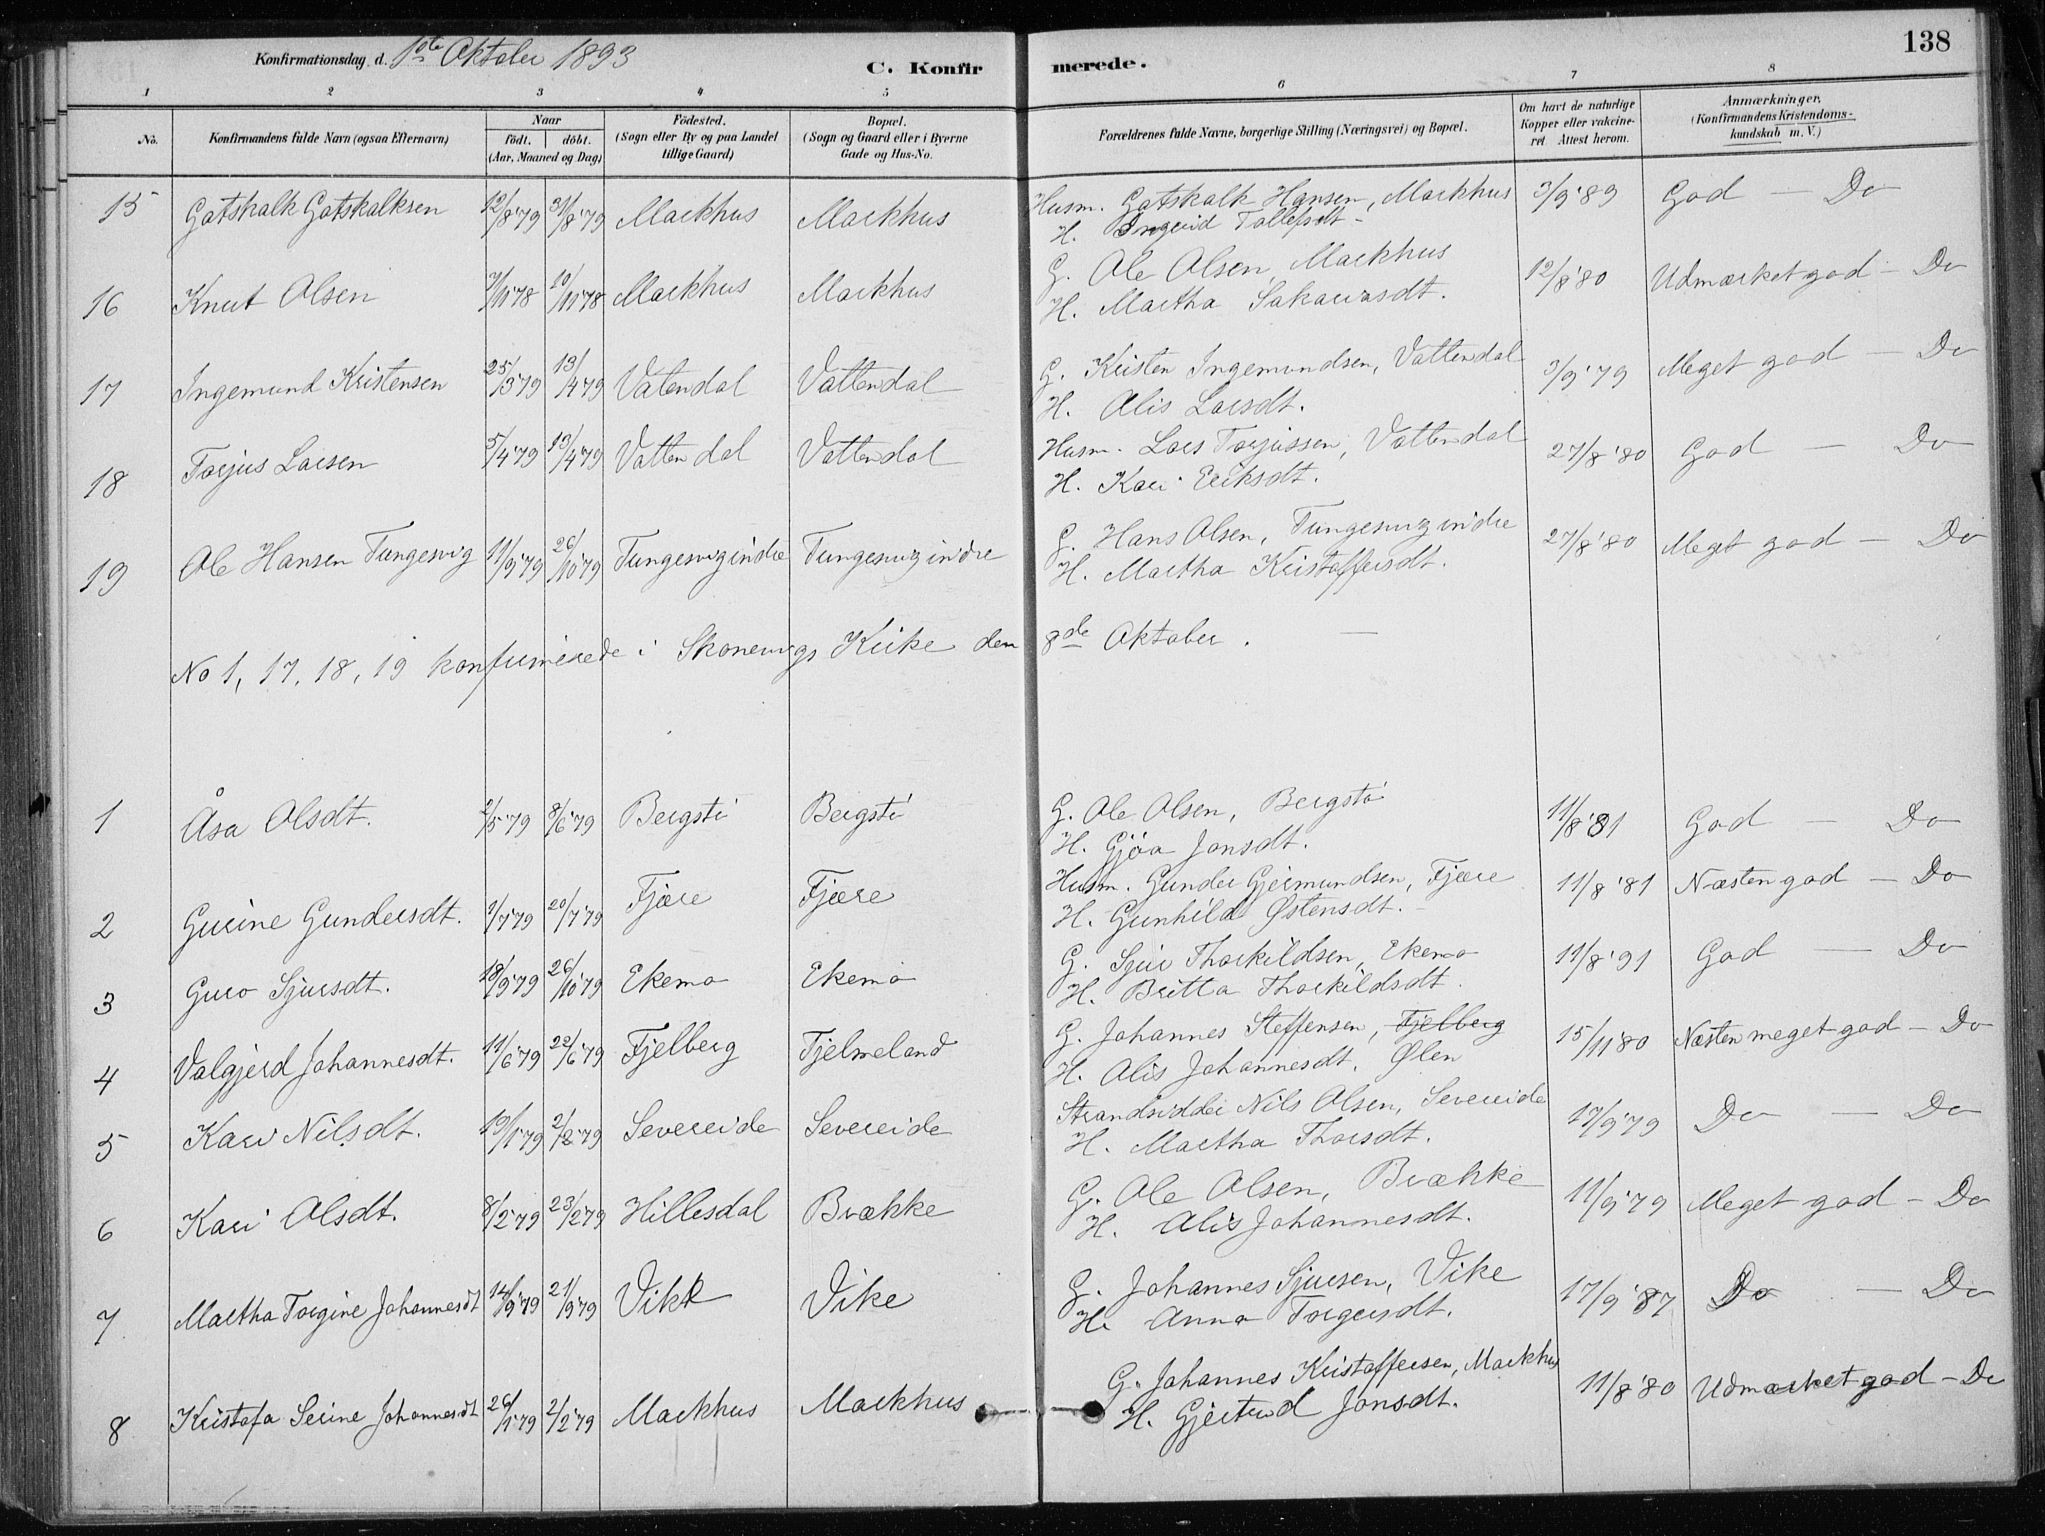 138
Konfirmationsdag d. 1ste Oktober 1893 C. Konfirmerede.
1 2 3 4 5 6 7 8
No. Konfirmandens fulde Navn (ogsaa Efternavn) Naar födt. döbt. (Aar, Maaned og Dag) Födested. (Sogn eller By og paa Landet tillige Gaard) Bopæl. (Sogn og Gaard eller i Byerne Gade og Hus-No. Forældrenes fulde Navne, borgerlige Stilling (Næringsvei) og Bopæl. Om havt de naturlige Kopper eller vakcineret Attest herom. Anmærkninger. (Konfirmandens Kristendomskundskab m. V.)
15 Gotskalk Gotskalksen 12/8'79 31/8'79 Markhus Markhus Husm. Gotskalk Hansen, Markhus 3/9'89 God — Do
H. Ingerid Tollefsdt –
16 Knut Olsen 7/11'78 10/11'78 Markhus Markhus G. Ole Olsen, Markhus 12/8'80 Udmærket god – Do
H. Martha Sakariasdt.
17 Ingemund Kristensen 25/3'79 13/4'79 Vatendal Vattendal G. Kristen Ingemundsen, Vattendal 3/9'79 Meget god — Do
H. Alis Larsdt.
18 Torjus Larsen 5/4'79 13/4'79 Vattendal Vattendal Husm. Lars Torjussen, Vattendal 27/8'80 God — Do
H. Kari Eriksdt.
19 Ole Hansen Tungesvig 11/9'79 26/10'79 Tungesvig indre Tungesvig indre G. Hans Olsen, Tungesvig indre 27/8'80 Meget god — Do
H. Martha Kristoffersdt.
No 1, 17, 18, 19 konfirmerede i Skonevigs Kirke den 8de Oktober. —
1 Åsa Olsdt. 2/5'79 8/6'79 Bergstö Bergstö G. Ole Olsen, Bergstö 11/8'81 God — Do
H. Gjöa Jonsdt.
2 Gurine Gundersdt. 9/7'79 20/7'79 Fjære Fjære Husm. Gunder Gjermundsen, Fjære 11/8'81 Næsten god – Do
H. Gunhild Østensdt. –
3 Guro Sjursdt. 18/9'79 26/10'79 Ekemo Ekemo G. Sjur Thorkildsen, Ekemo 11/8'91 God — Do
H. Britta Thorkildsdt.
4 Valgjerd Johannesdt. 11/6'79 22/6'79 Fjelberg Fjelmeland G. Johannes Steffensen, Fjelberg 15/11'80 Næsten meget god – Do
H. Alis Johannesdt. Ølen
5 Kari Nilsdt. 19/1'79 2/2'79 Severeide Severeide Strandsidder Nils Olsen, Severeide 17/9'79 Do — Do
H. Martha Thorsdt.
6 Kari Olsdt. 8/2'79 23/2'79 Hillesdal Brække G. Ole Olsen, Brække 11/9'79 Meget god – Do
H. Alis Johannesdt.
7 Martha Torgine Johannesdt 14/9'79 21/9'79 Vike Vike G. Johannes Sjursen, Vike 17/9'87 Do — Do
H. Anna Torgersdt.
8 Kristofa Serine Johannesdt 26/1'79 2/2'79 Markhus Markhus G. Johannes Kristoffersen, Markhus 11/8'80 Udmærket god – Do
H. Gjertrud Jonsdt.